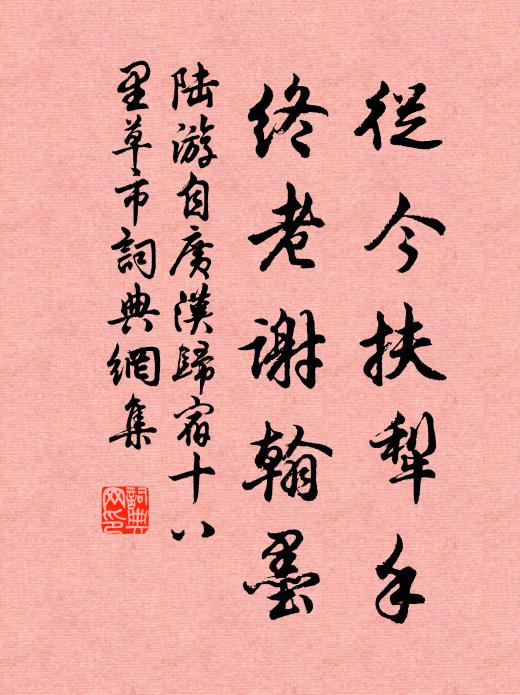 從今扶犁手
終老謝翰墨
陸游自廣漢歸宿十八
里草市詞典網集
詞典
网印